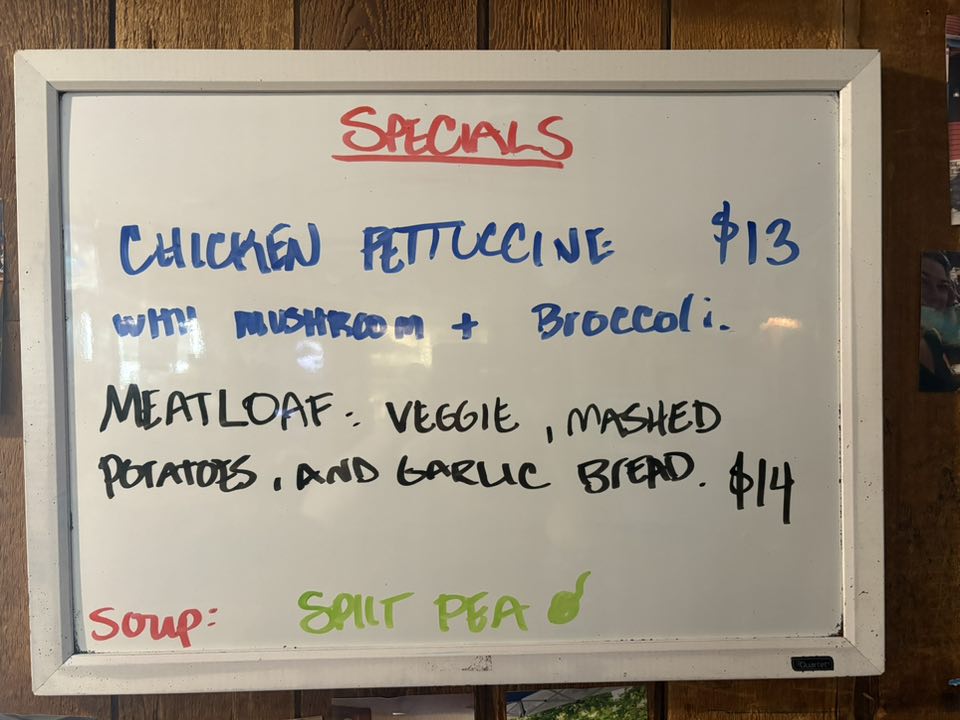 SPECIALS
CHICKEN FETTUCCINE $13
WITH MUSHROOM + Broccoli.
MEATLOAF: VEGGIE, MASHED
POTATOES, AND GARLIC BREAD. $14
Soup: SPLIT PEA
Quartet